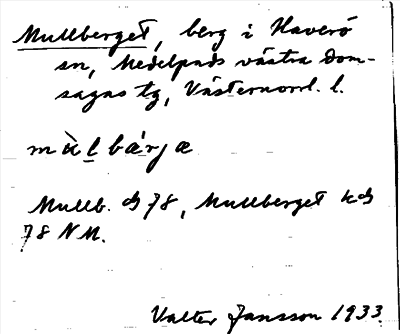 Mullberget, berg i Haverö
sn, Medelpads västra dom-
sagas tg, Västernorrl. l.
mùlbárjæ
Mullb. ds 78, Mullberget kds
78 NM.
Valter Jansson 1933.